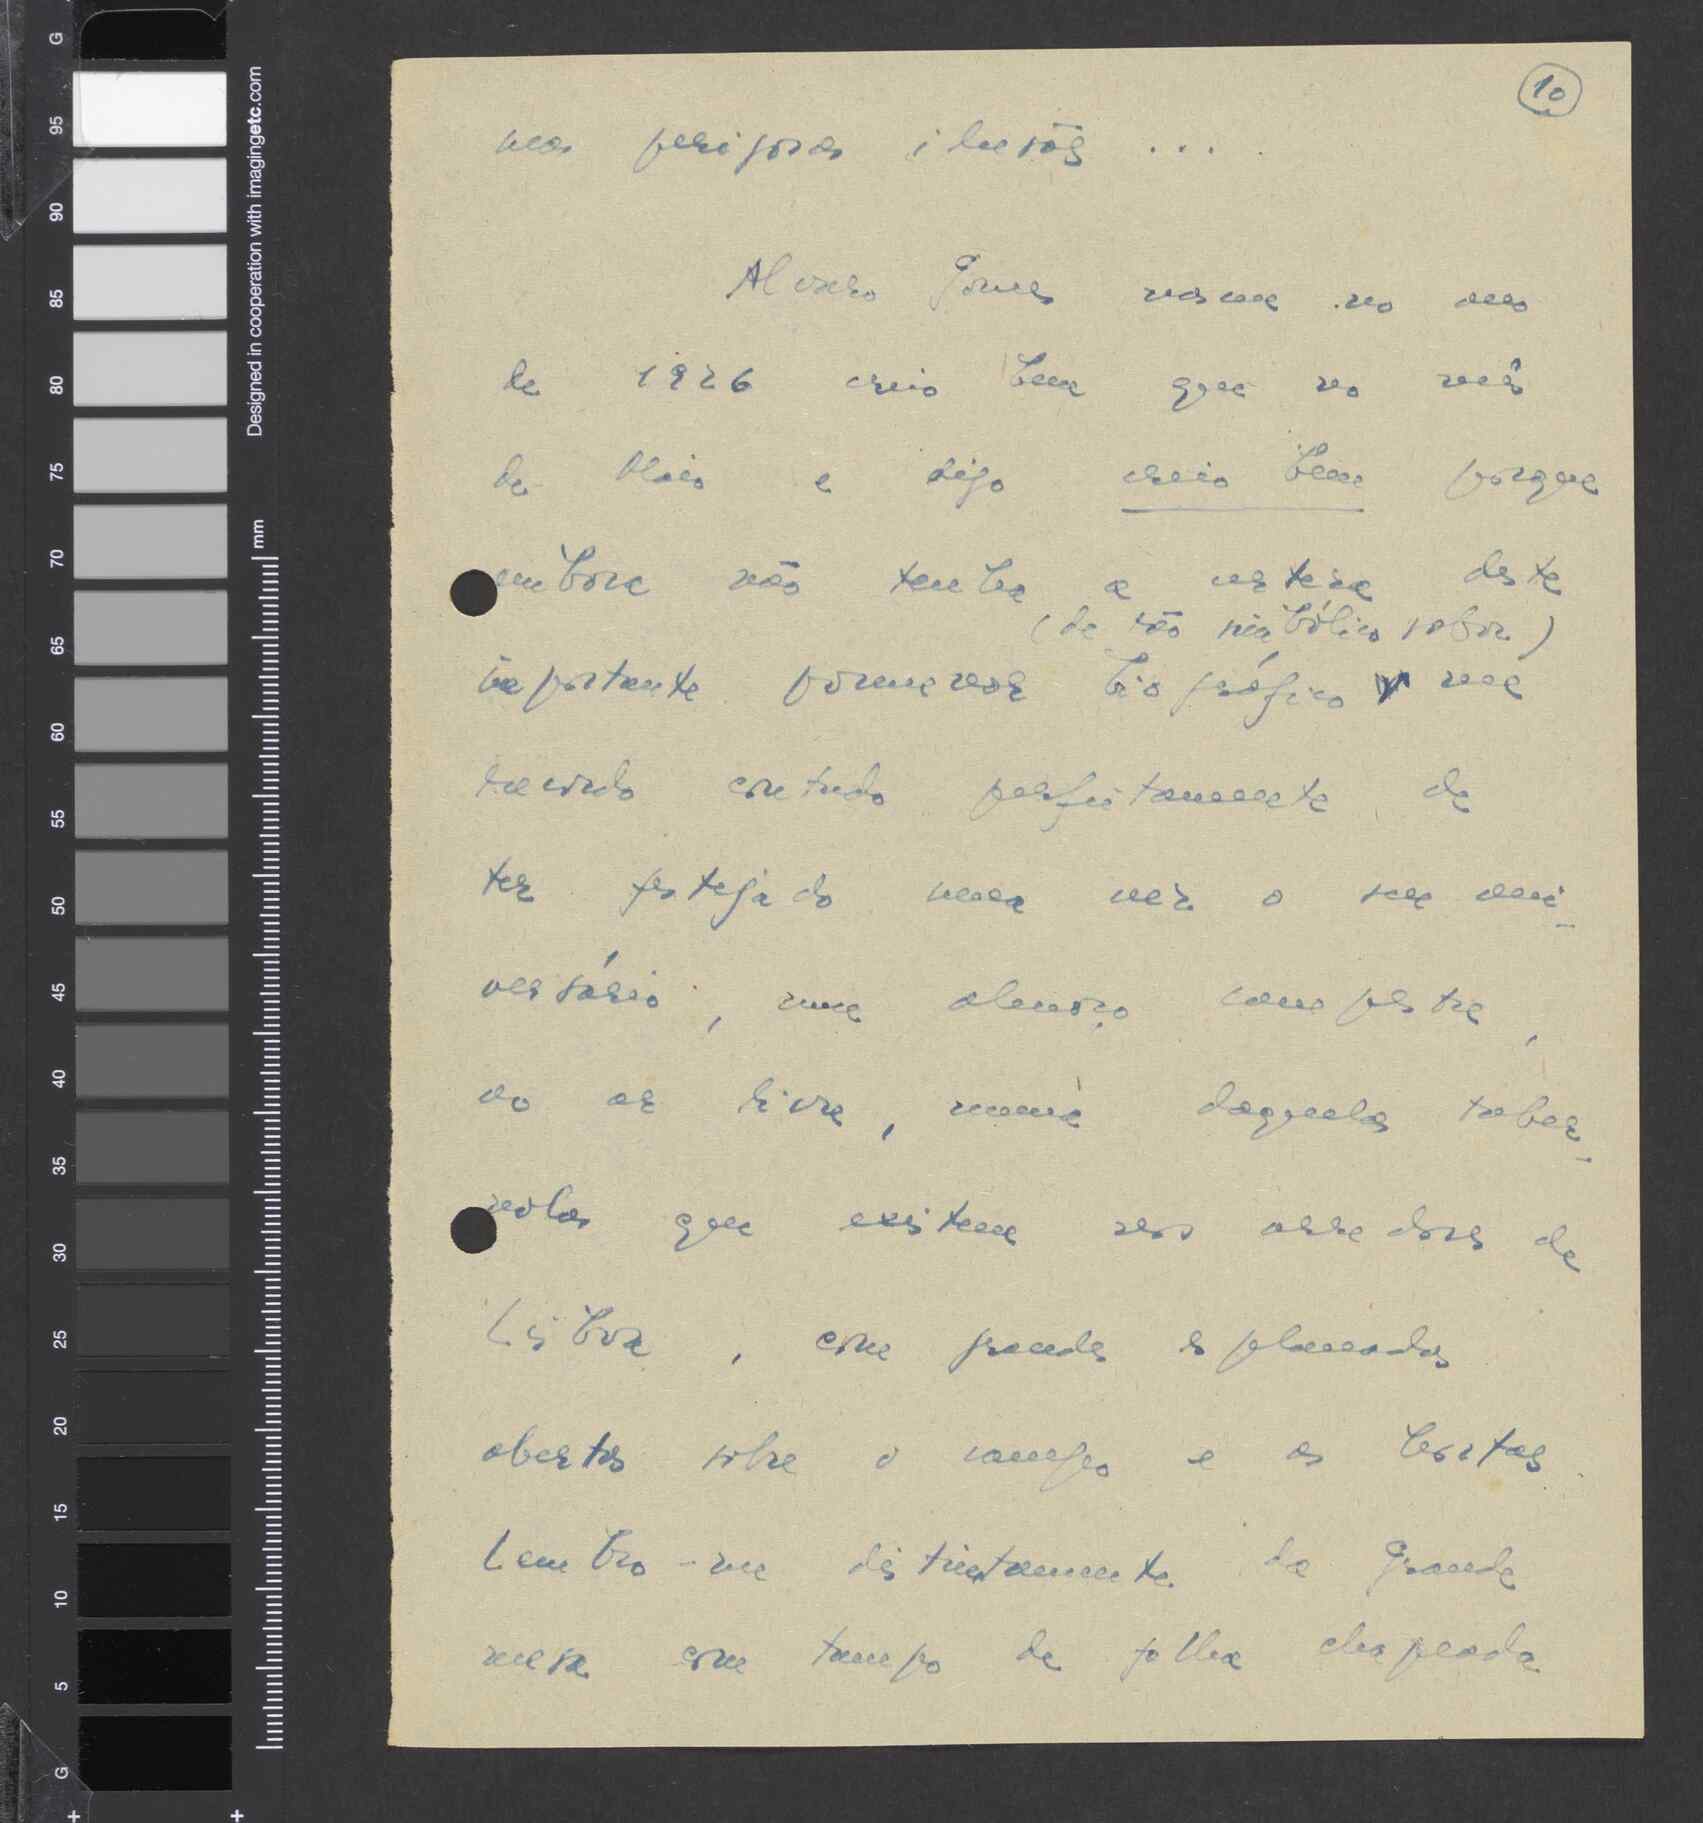 10
nas perigosas ilusões ....
Alvaro Gomes nasceu no ano
de 1926 creio bem que no mês
de Maio e digo creio bem porque
embora não tenha a certeza deste
(de tão simbólico sabor)
importante pormenor biográfico me
recordo contudo perfeitamente de
ter festejado uma vez o seu ani-
versário, num almoço campestre,
ao ar livre, numa daquelas taber-
nolas que existem nos arredores de
Lisboa, com grandes esplanadas
abertas sobre o campo e as hortas
Lembro-me distintamente da grande
mesa com tampo de folha chapeada
G
95
90
85
80
75
70
65
60
55
50
45
40
35
30
25
20
15
10
5
G
Designed in cooperation with imagingetc.com
mm